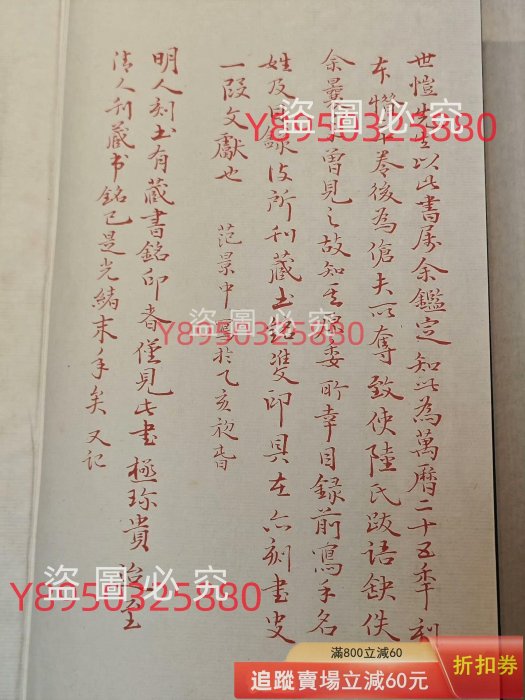 世愷先生以此書屬余鑑定知此為萬曆二十五年刻
本惜卷後為傖夫所奪致使陸氏跋語缺佚
余曩曾見之故知其原委所幸目錄前寫手名
姓及目錄後所刊藏書銘雙印具在亦刻書史
一段文獻也 范景中 寫於乙亥初昏
明人刻書有藏書銘印者僅見此書極珍貴 迨至
清人刊藏书銘已是光緒末年矣 又記
盜圖必究
Y8950325880
盜圖必究
Y8950325880
盜圖必究
Y8950325880
滿800立減60
追蹤賣場立減60元
折扣券